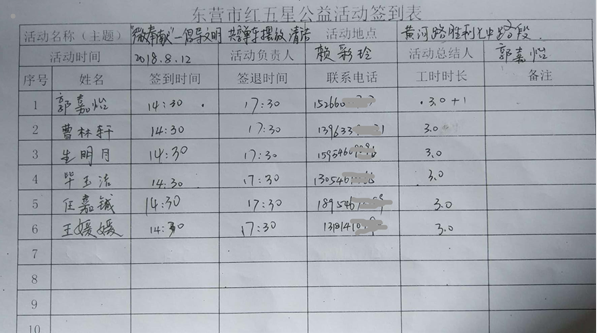 东营市红五星公益活动签到表
活动名称（主题） "微奉献"—倡导文明 共享单车摆放 清洁 活动地点 黄河路胜利
活动时间 2018.8.12 活动负责人 赖彩玲 活动总结人 郭嘉怡
序号 姓名 签到时间 签退时间 联系电话 工时时长 备注
1 郭嘉怡 14:30 17:30 152660 3.0+1
2 曹林轩 14:30 17:30 139633 3.0
3 生明月 14:30 17:30 1595460 3.0
4 毕玉洁 14:30 17:30 130546 3.0
5 任嘉铖 14:30 17:30 189546 3.0
6 王媛媛 14:30 17:30 3.0
7
8
9
10